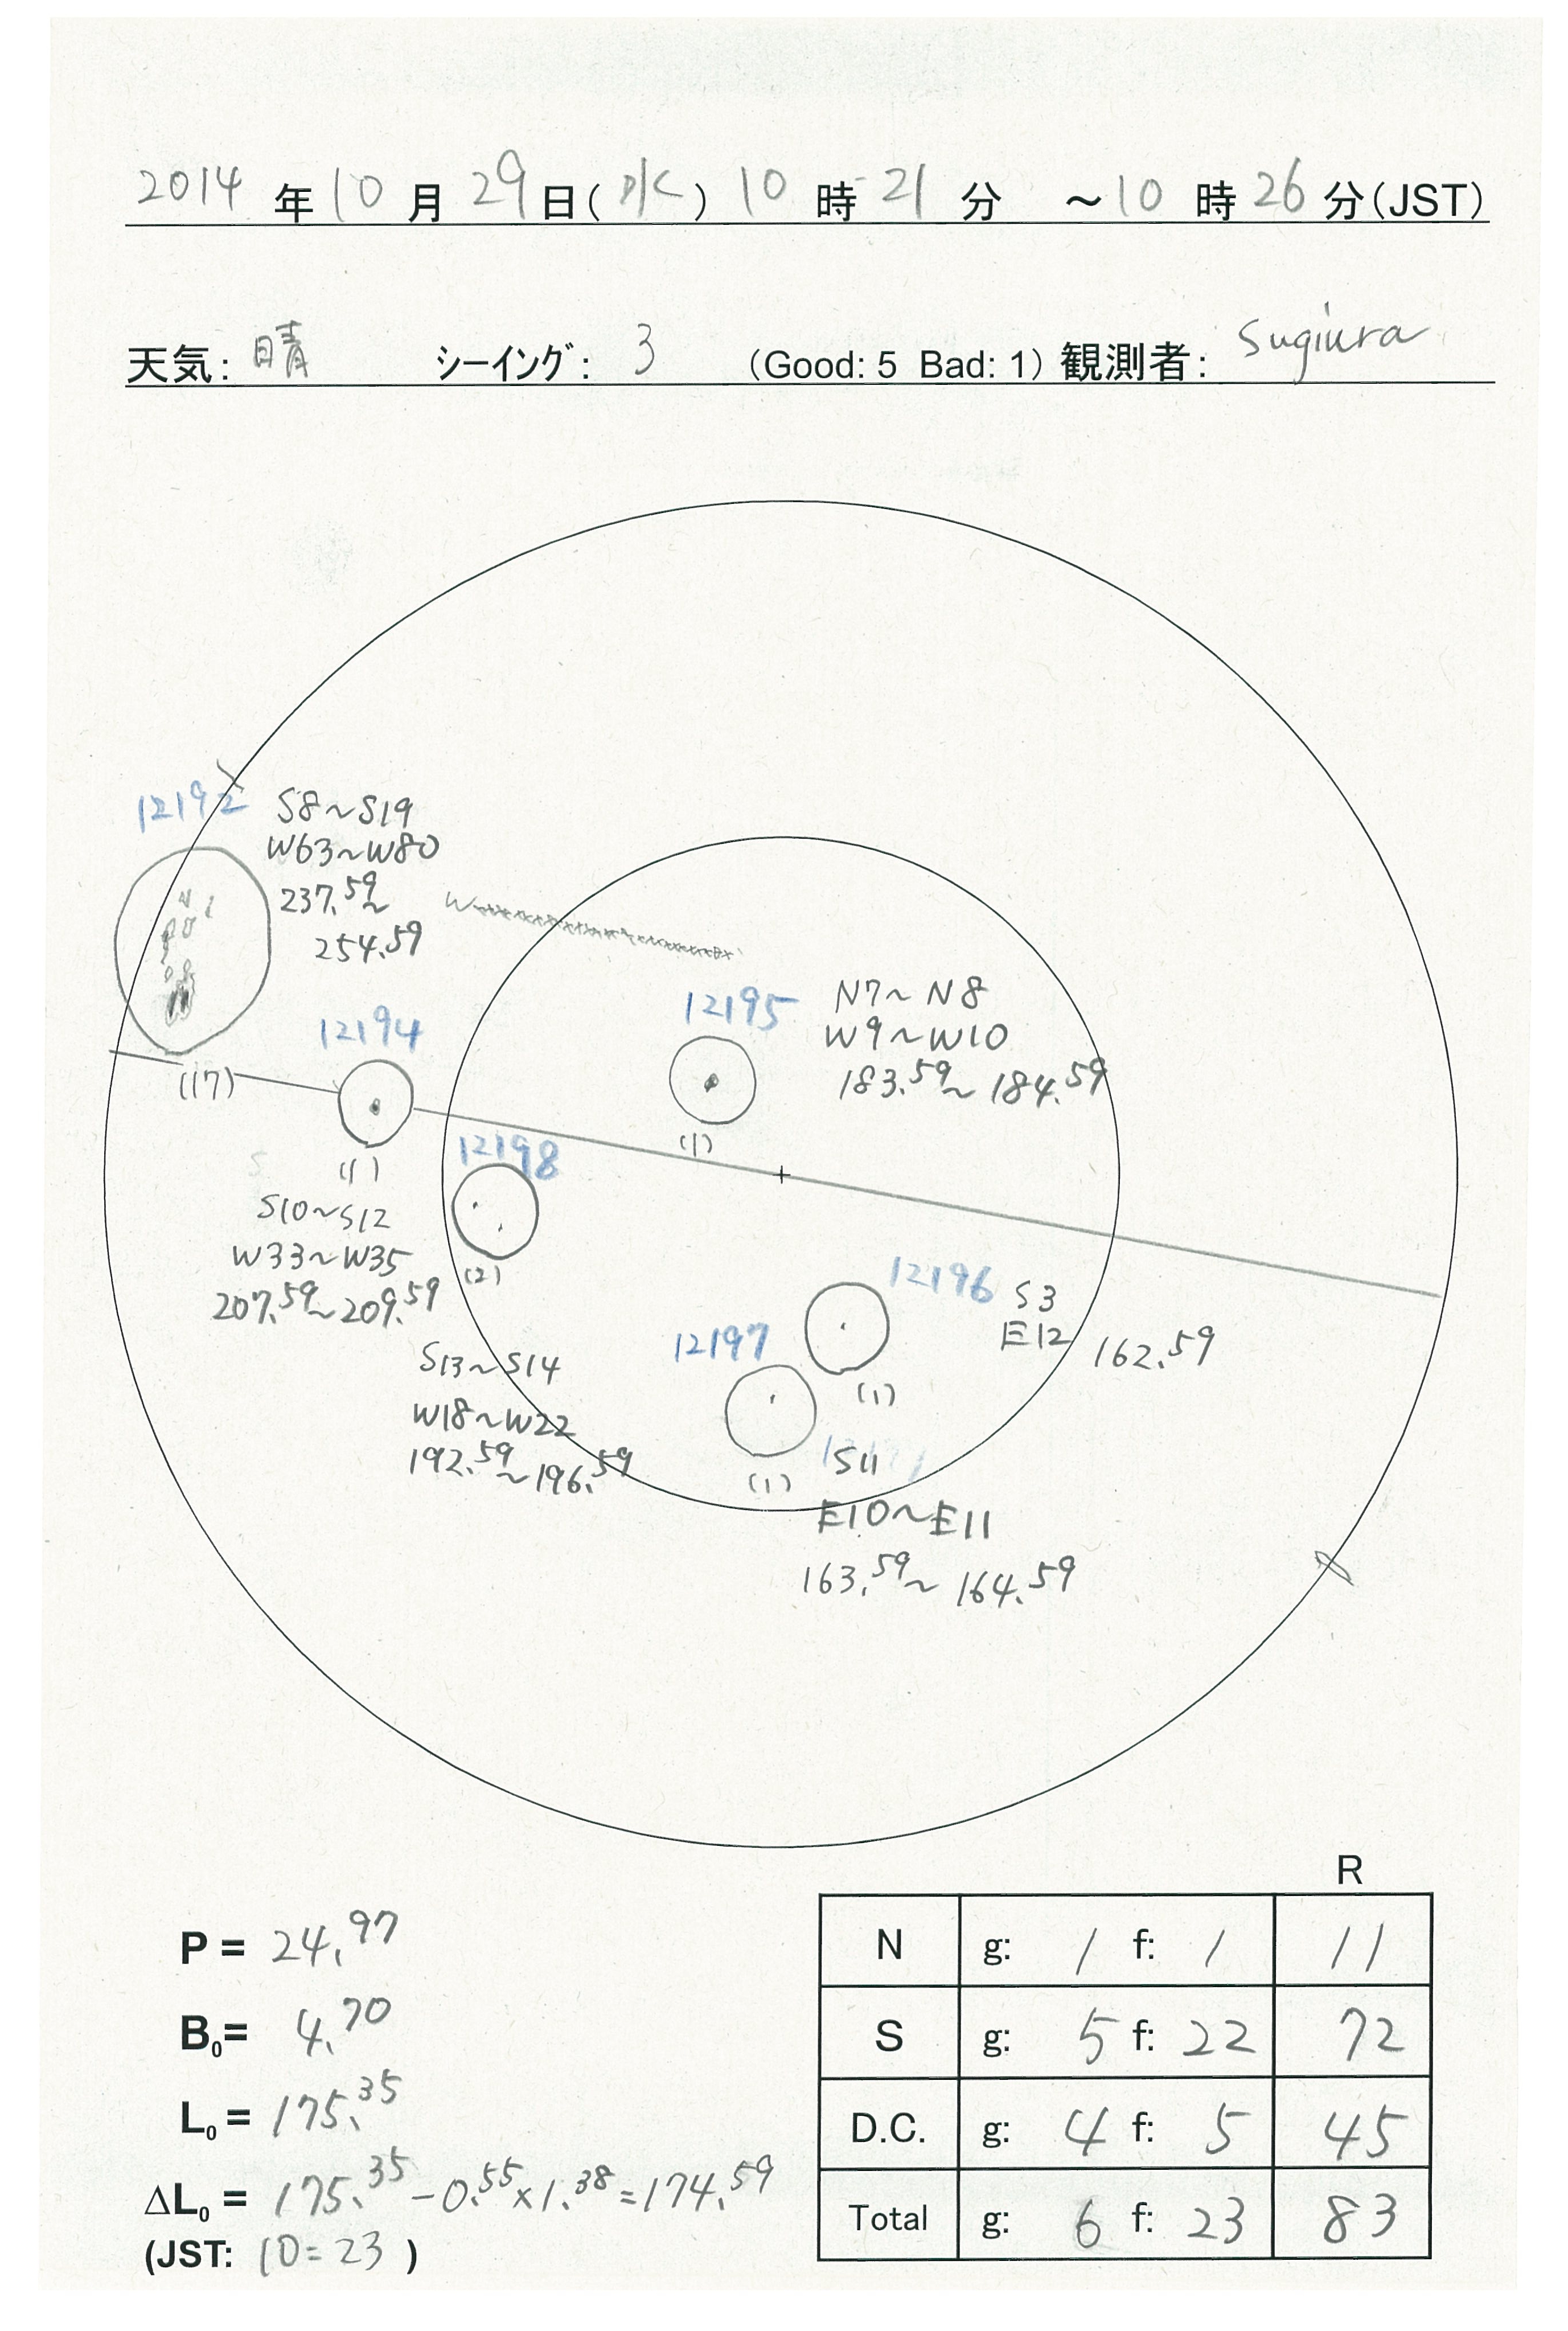 2014 年 10 月 29 日(水) 10 時 21 分 ～10 時 26 分(JST)
天気: 晴 シーイング: 3 (Good: 5 Bad: 1) 観測者: Sugiura
12192
S8～S19
W63～W80
237.59～
254.59
(17)
W
12194
(1)
S10～S12
W33～W35
207.59～209.59
12195
N7～N8
W9～W10
183.59～184.59
(1)
12198
(2)
S13～S14
W18～W22
192.59～196.59
12196
S3
E12
162.59
(1)
12197
(1)
S11
E10～E11
163.59～164.59
P = 24.97
B0= 4.70
L0 = 175.35
ΔL0 = 175.35-0.55×1.38=174.59
(JST: 10=23 )
R
N g: 1 f: 1 11
S g: 5 f: 22 72
D.C. g: 4 f: 5 45
Total g: 6 f: 23 83